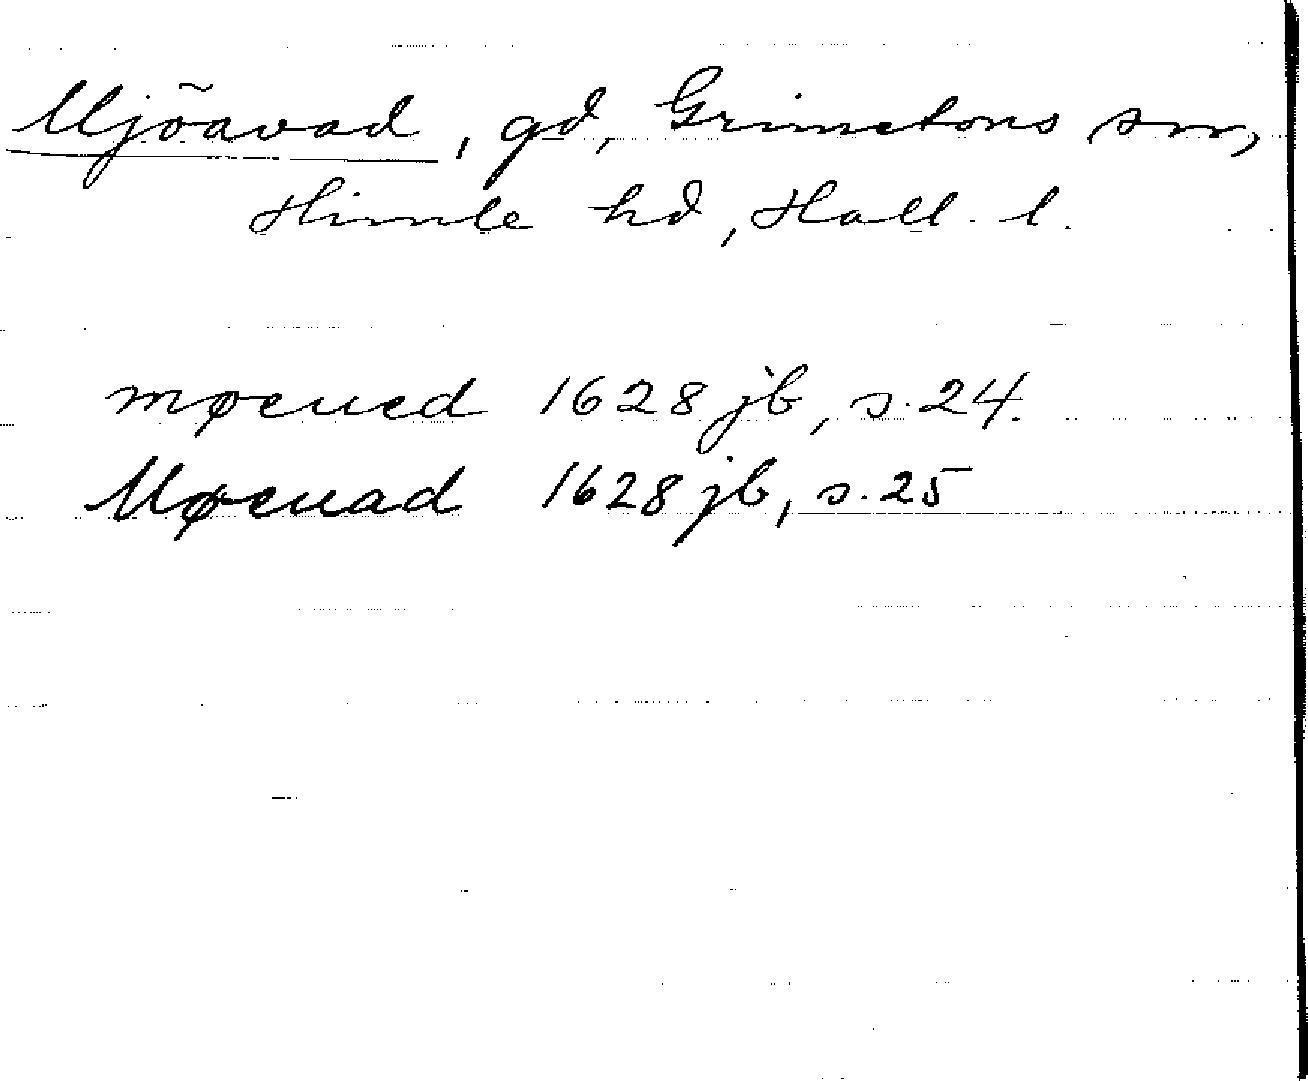 Mjöavad, gd, Grimetons sn,
Himle hd, Hall. l.
møeued 1628 jb, s. 24.
Møeuad 1628 jb, s. 25